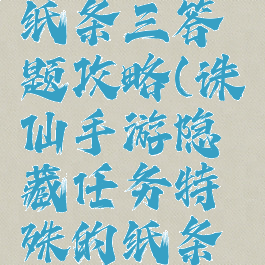 纸条三答
题攻略(诛
仙手游隐
藏任务特
殊的纸条